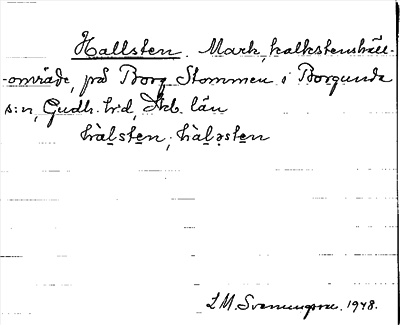 Hallsten. Mark, kalkstenshäll-
-område, på Borg Stommen i Borgunda
s:n, Gudh. h:d, Skb. län
hàlstẹn, hàləstẹn
L M. Svenungsson. 1948.